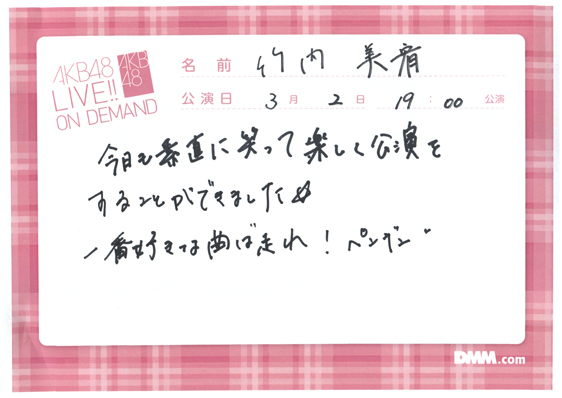 AKB48
LIVE!!
ON DEMAND
AKB
48
名前 竹内 美宥
公演日 3月 2日 19:00 公演
今日も素直に笑って楽しく公演を
することができました☆
一番好きな曲は走れ!ペンギン
DMM.com